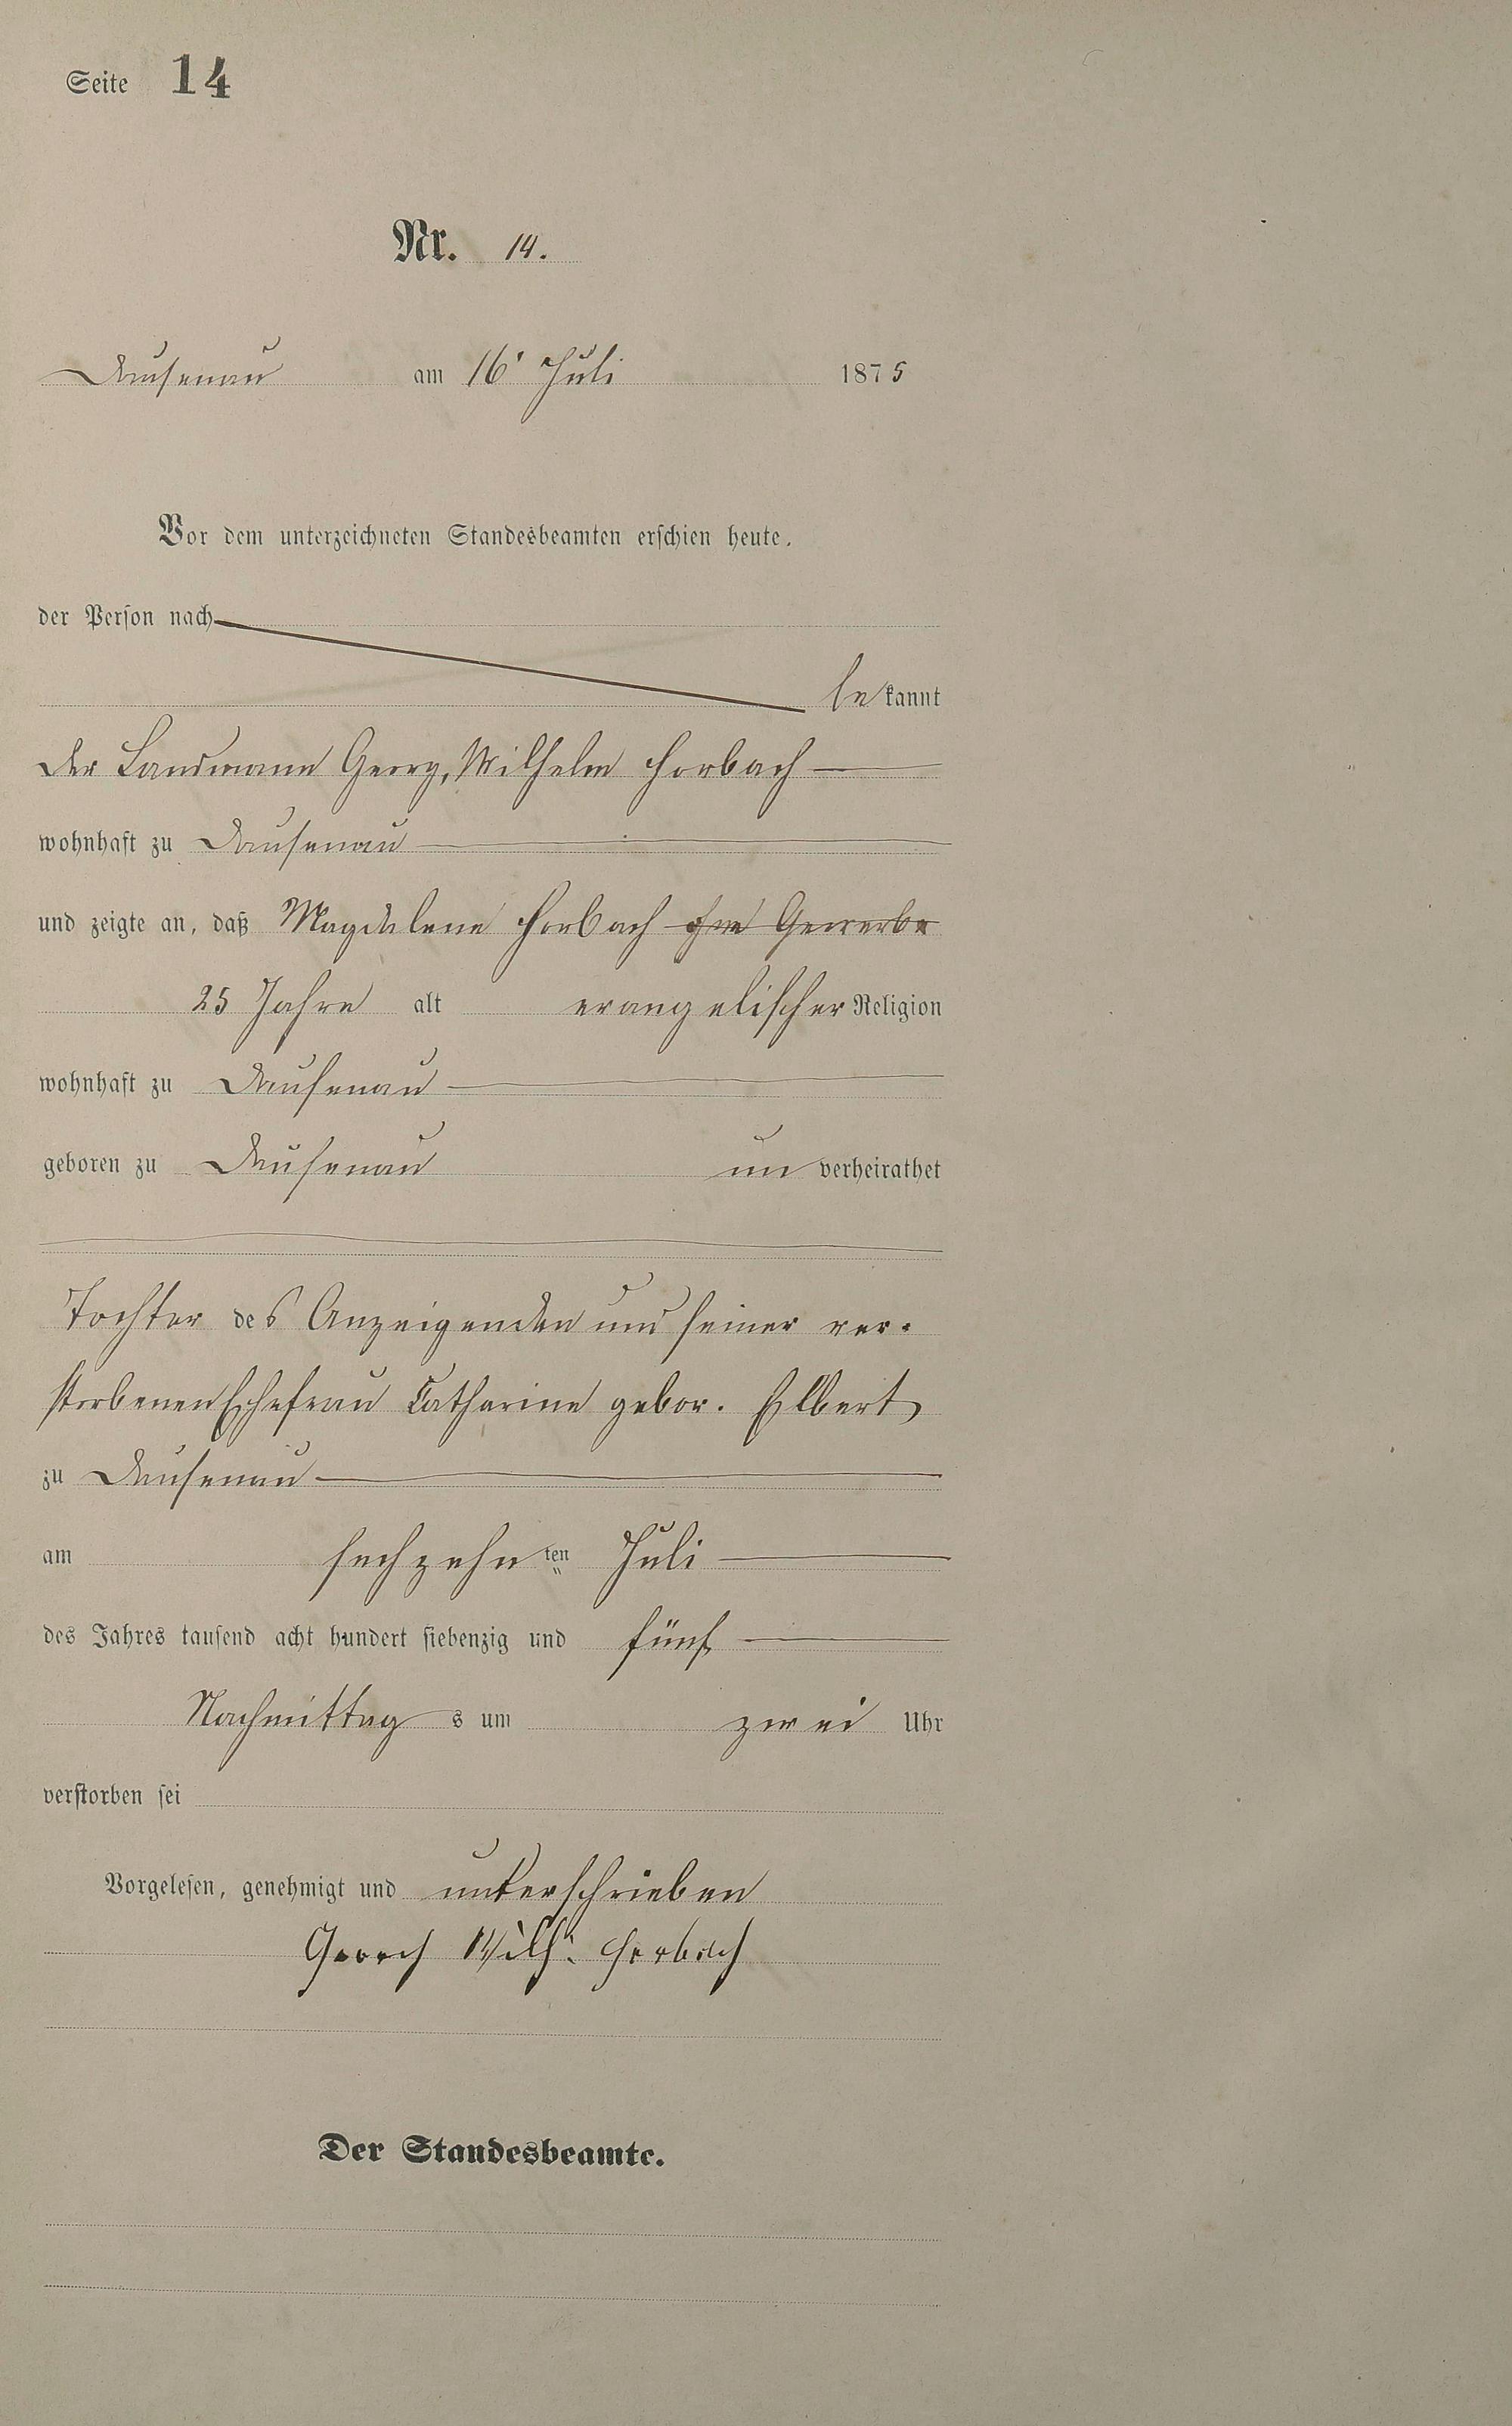 Seite 14
Nr. 14.
Dausenau am 16' Juli 1875
Vor dem unterzeichneten Standesbeamten erschien heute,
der Person nach
bekannt
der Landmann Georg, Wilhelm Horbach
wohnhaft zu Dausenau
und zeigte an, daß Magdalena Horbach ohne Gewerbe
25 Jahre alt evangelischer Religion
wohnhaft zu Dausenau
geboren zu Dausenau unverheirathet
Tochter des Anzeigenden und seiner ver-
storbenen Ehefrau Catharine gebor. Elbert
zu Dausenau
am sechzehnten Juli
des Jahres tausend acht hundert siebenzig und fünf
Nachmittags um zwei Uhr
verstorben sei
Vorgelesen, genehmigt und unterschrieben
Georch Wilh. Horbach
Der Standesbeamte.